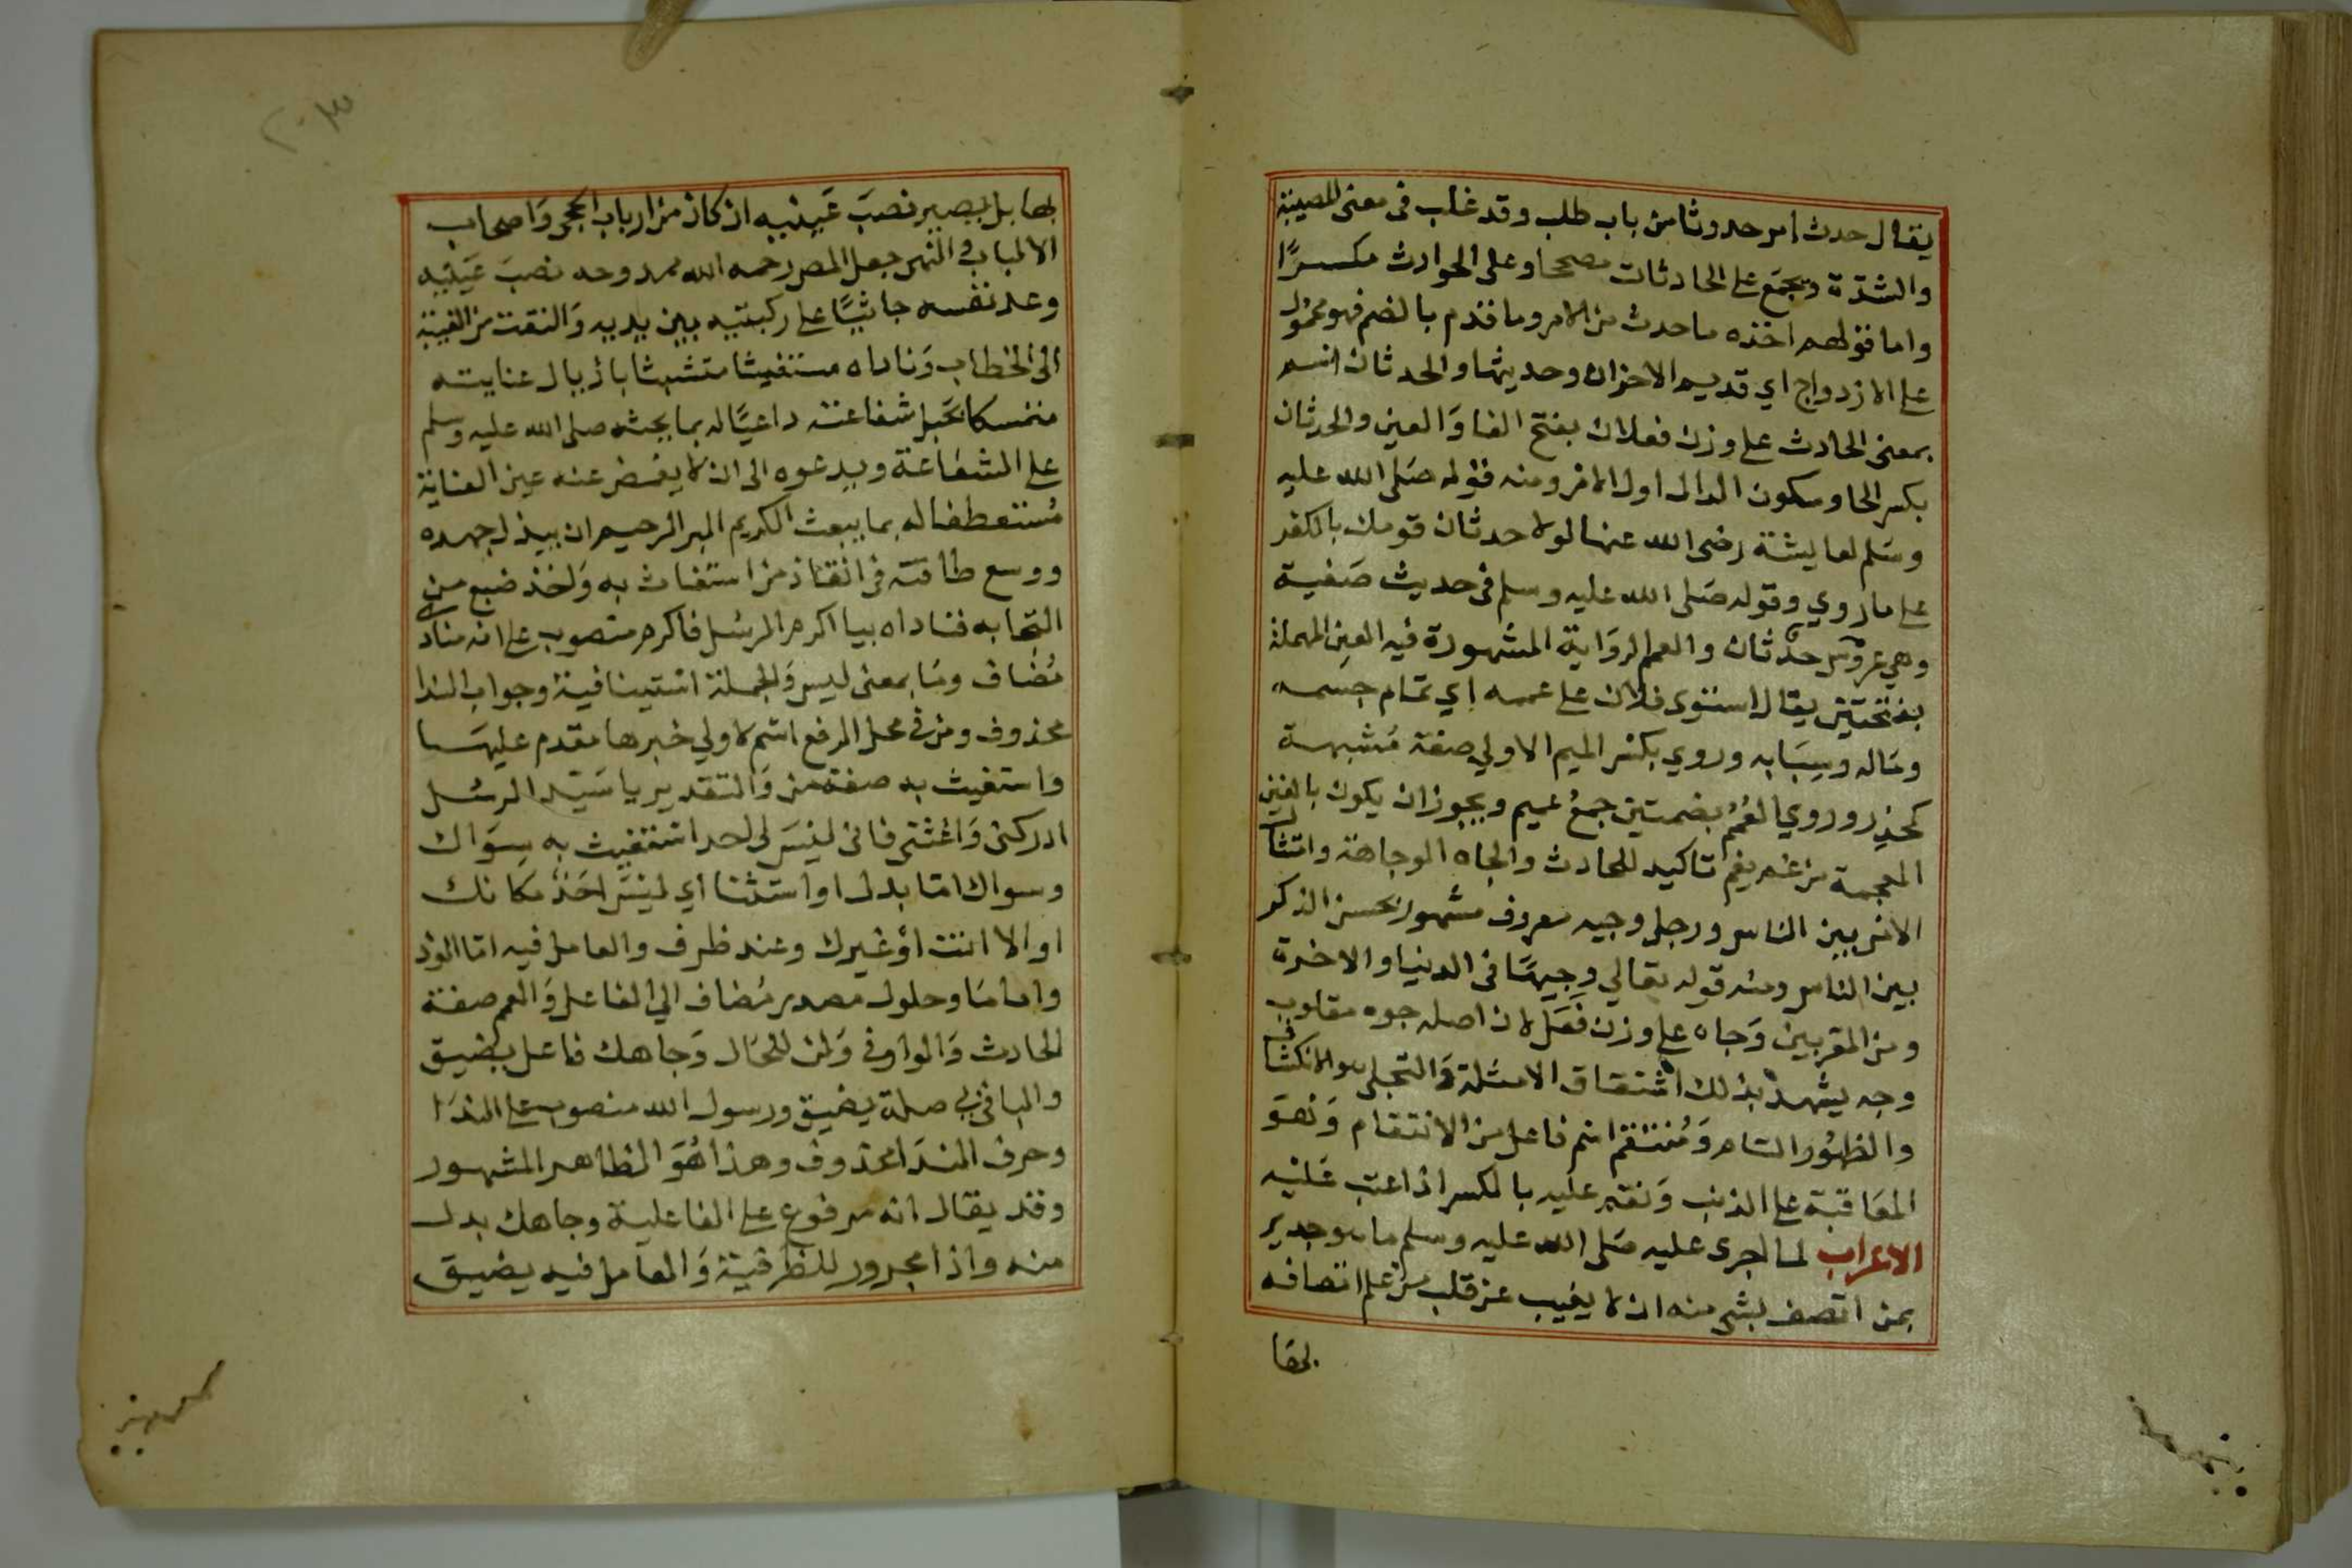 يقال حدث امر حدوثا من باب طلب وقد غلب فى معنى المصيبة
والشدّة ويجمَع على الحادثات مصححا وعلى الحوادث مكسرًا
واما قولهم اخذه ما حدث من الامر وما قدم بالضم فهو محمول
على الازدواج اي قديم الاحزان وحديثها والحدثان اسم
بمعنى الحادث على وزن فعلان بفتح الفا وَالعين والحدثان
بكسر الحا وسكون الدال اول الامر ومنه قوله صَلى الله عليه
وسَلم لعايشة رضى الله عنها لولا حدثان قومك بالكفر
على ما روي وقوله صَلى الله عليه وسلم فى حديث صَفية
وهي عروس حدثان والعمم الروَاية المشهورة فيه العين المهملة
بفتحتين يقال استوى فلان على عممه اي تمام جسمه
ومَاله وسبَابه وروي بكسر الميم الاولي صفة مُشبهة
كحذر وروي العُمُم بضمتين جمعُ عميم ويجوز ان يكون بالغين
المعجمة من غم يغم تاكيد للحادث والجاه الوجاهة وامتثال
الامر بين الناس ورجل وجيه معروف مشهور بحسن الذكر
بين الناس ومنه قوله تعالي وجيهًا فى الدنيا والاخرة
ومن المقربين وَجاه على وزن فَعَل لان اصله جوه مقلوب
وجه يشهد بذلك اشتقاق الامثلة وَالتجلى هو الانكشاف
والظهُور التام وَمُنتقم اسم فاعل من الانتقام وَهوَ
المعَاقبة على الذنب وَنقم عليه بالكسر اذا عتب عَليْه
الاعراب لما اجرى عليه صَلى الله عليه وسلم ما هو جدير
بمن اتصف بشي منه ان لا يغيب عن قلب من علم اتصافه
بها
بها بل يصير نصبَ عَينيه ان كان من ارباب الحجى وَاصحاب
الالباب والنهى جعل المص رحمه الله ممدوحه نصبَ عَينيه
وعد نفسه جاثيًا على ركبتيه بين يديه وَالتفت من الغيبة
الى الخطاب وَناداه مستغيثا متشبثا باذيال عنايته
متمسكا بحَبل شفاعته داعيًا له بما يحثه صلى الله عليه وسلم
على الشفاعة ويدعوه الى ان لا يغمض عنه عين العناية
مُستعطفا له بما يبعث الكريم البر الرحيم ان يبذل جهده
ووسع طاقته فى انقاذ من استغاث به وَاخذ ضبع من
التجا به فناداه بيا اكرم الرسُل فاكرم منصوب على انه منادى
مُضاف ومَا بمعنى ليس وَالجملة استينافية وجواب الندا
محذوف ومن فى محل الرفع اسم لا ولي خبرها مقدم عليهَا
واستغيث به صفة من وَالتقدير يا سَيّد الرسُل
ادركنى وَاغثنى فانى ليسَ لى احد استغيث به سِوَاك
وسواك امّا بدل او استثنا اي ليسَ احَد مكانك
او الا انت اوْ غيرك وعند ظرف والعامل فيه امّا الوذ
واما مَا وحلول مصدر مُضاف الي الفاعل وَالعمم صفة
الحادث وَالواو فى وَلن للحَال وَجاهك فاعل يضيق
والبا فى بي صلة يضيق ورسول الله منصوب على الندَا
وحرف الندَا محذوف وهذا هُوَ الظاهر المشهور
وقد يقال انه مرفوع على الفاعلية وجاهك بدل
منه واذا مجرور للظرفية وَالعامل فيه يضيق